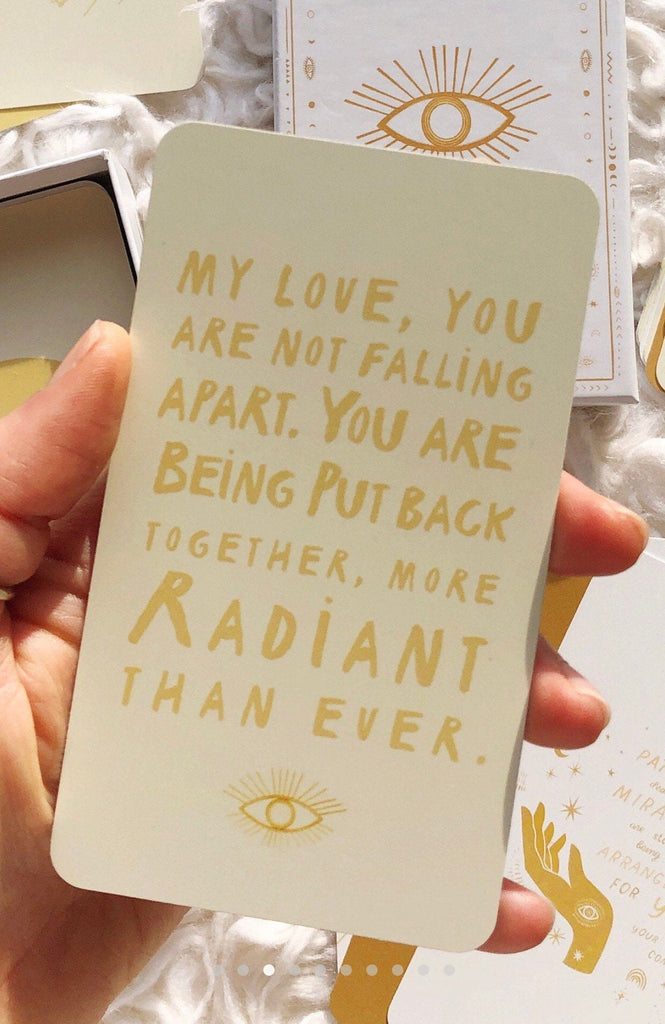 MY LOVE, YOU
ARE NOT FALLING
APART. YOU ARE
BEING PUT BACK
TOGETHER, MORE
RADIANT
THAN EVER.
ARE
FOR
YOUR